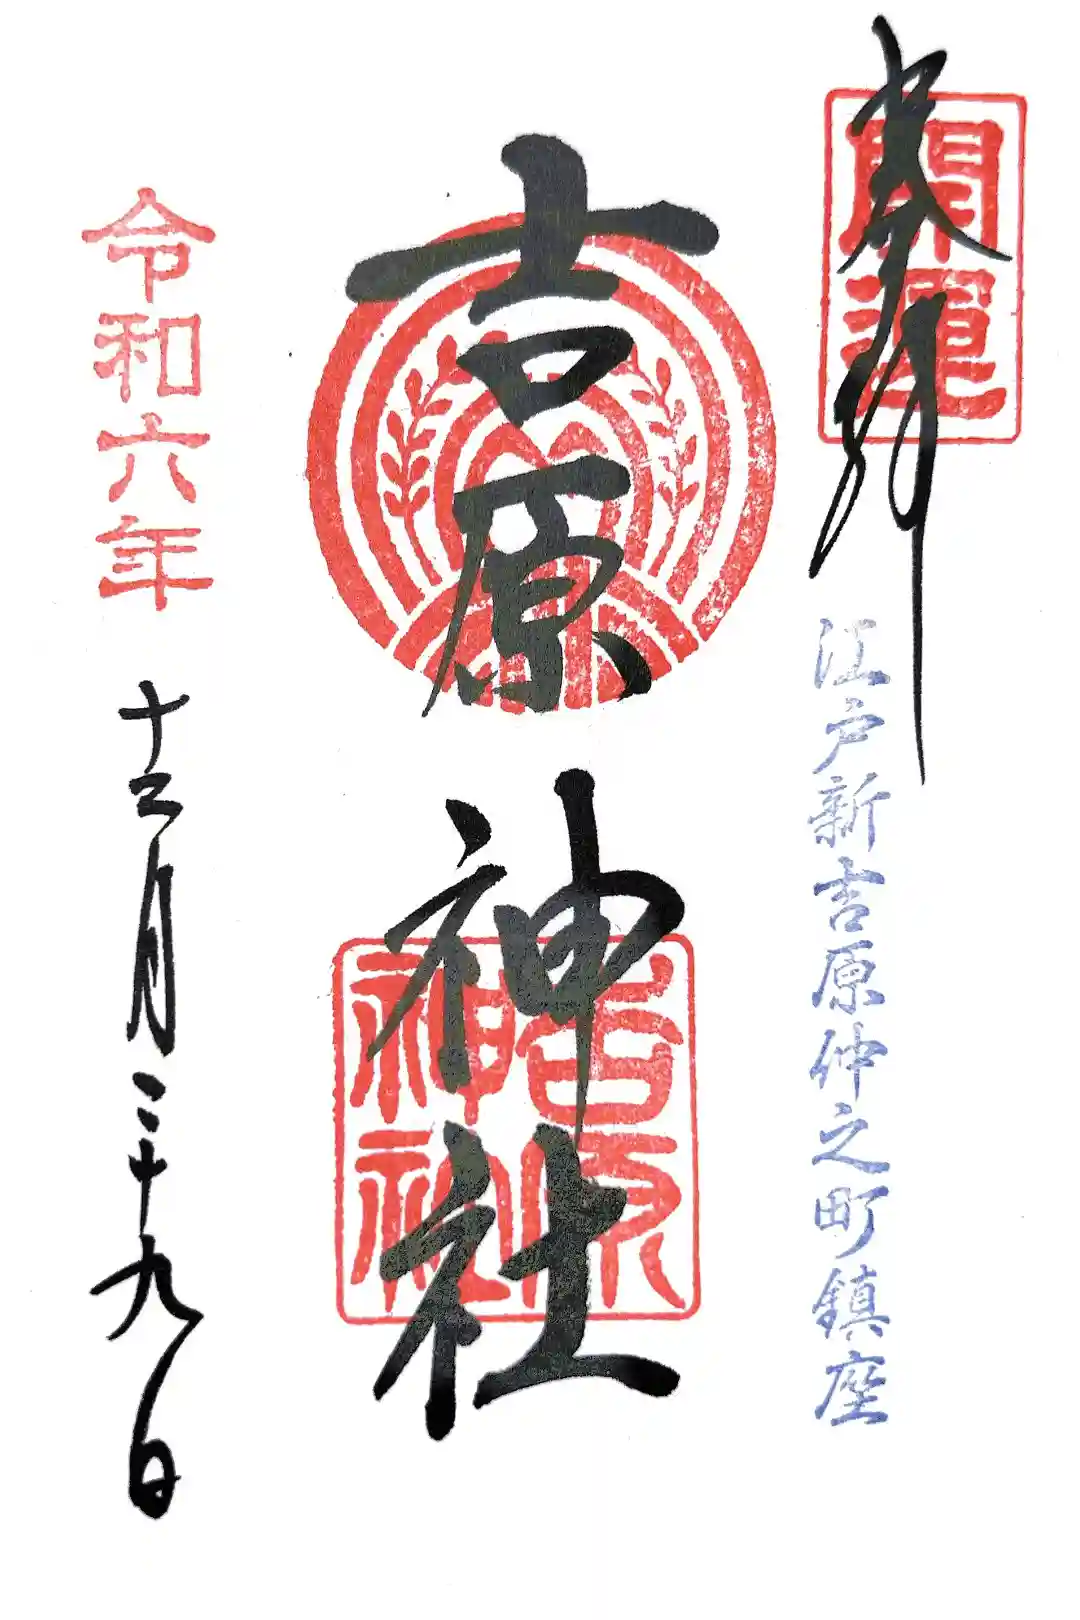 奉拝
開運
江戸新吉原仲之町鎮座
吉原神社
吉原
神社
令和六年
十二月二十九日